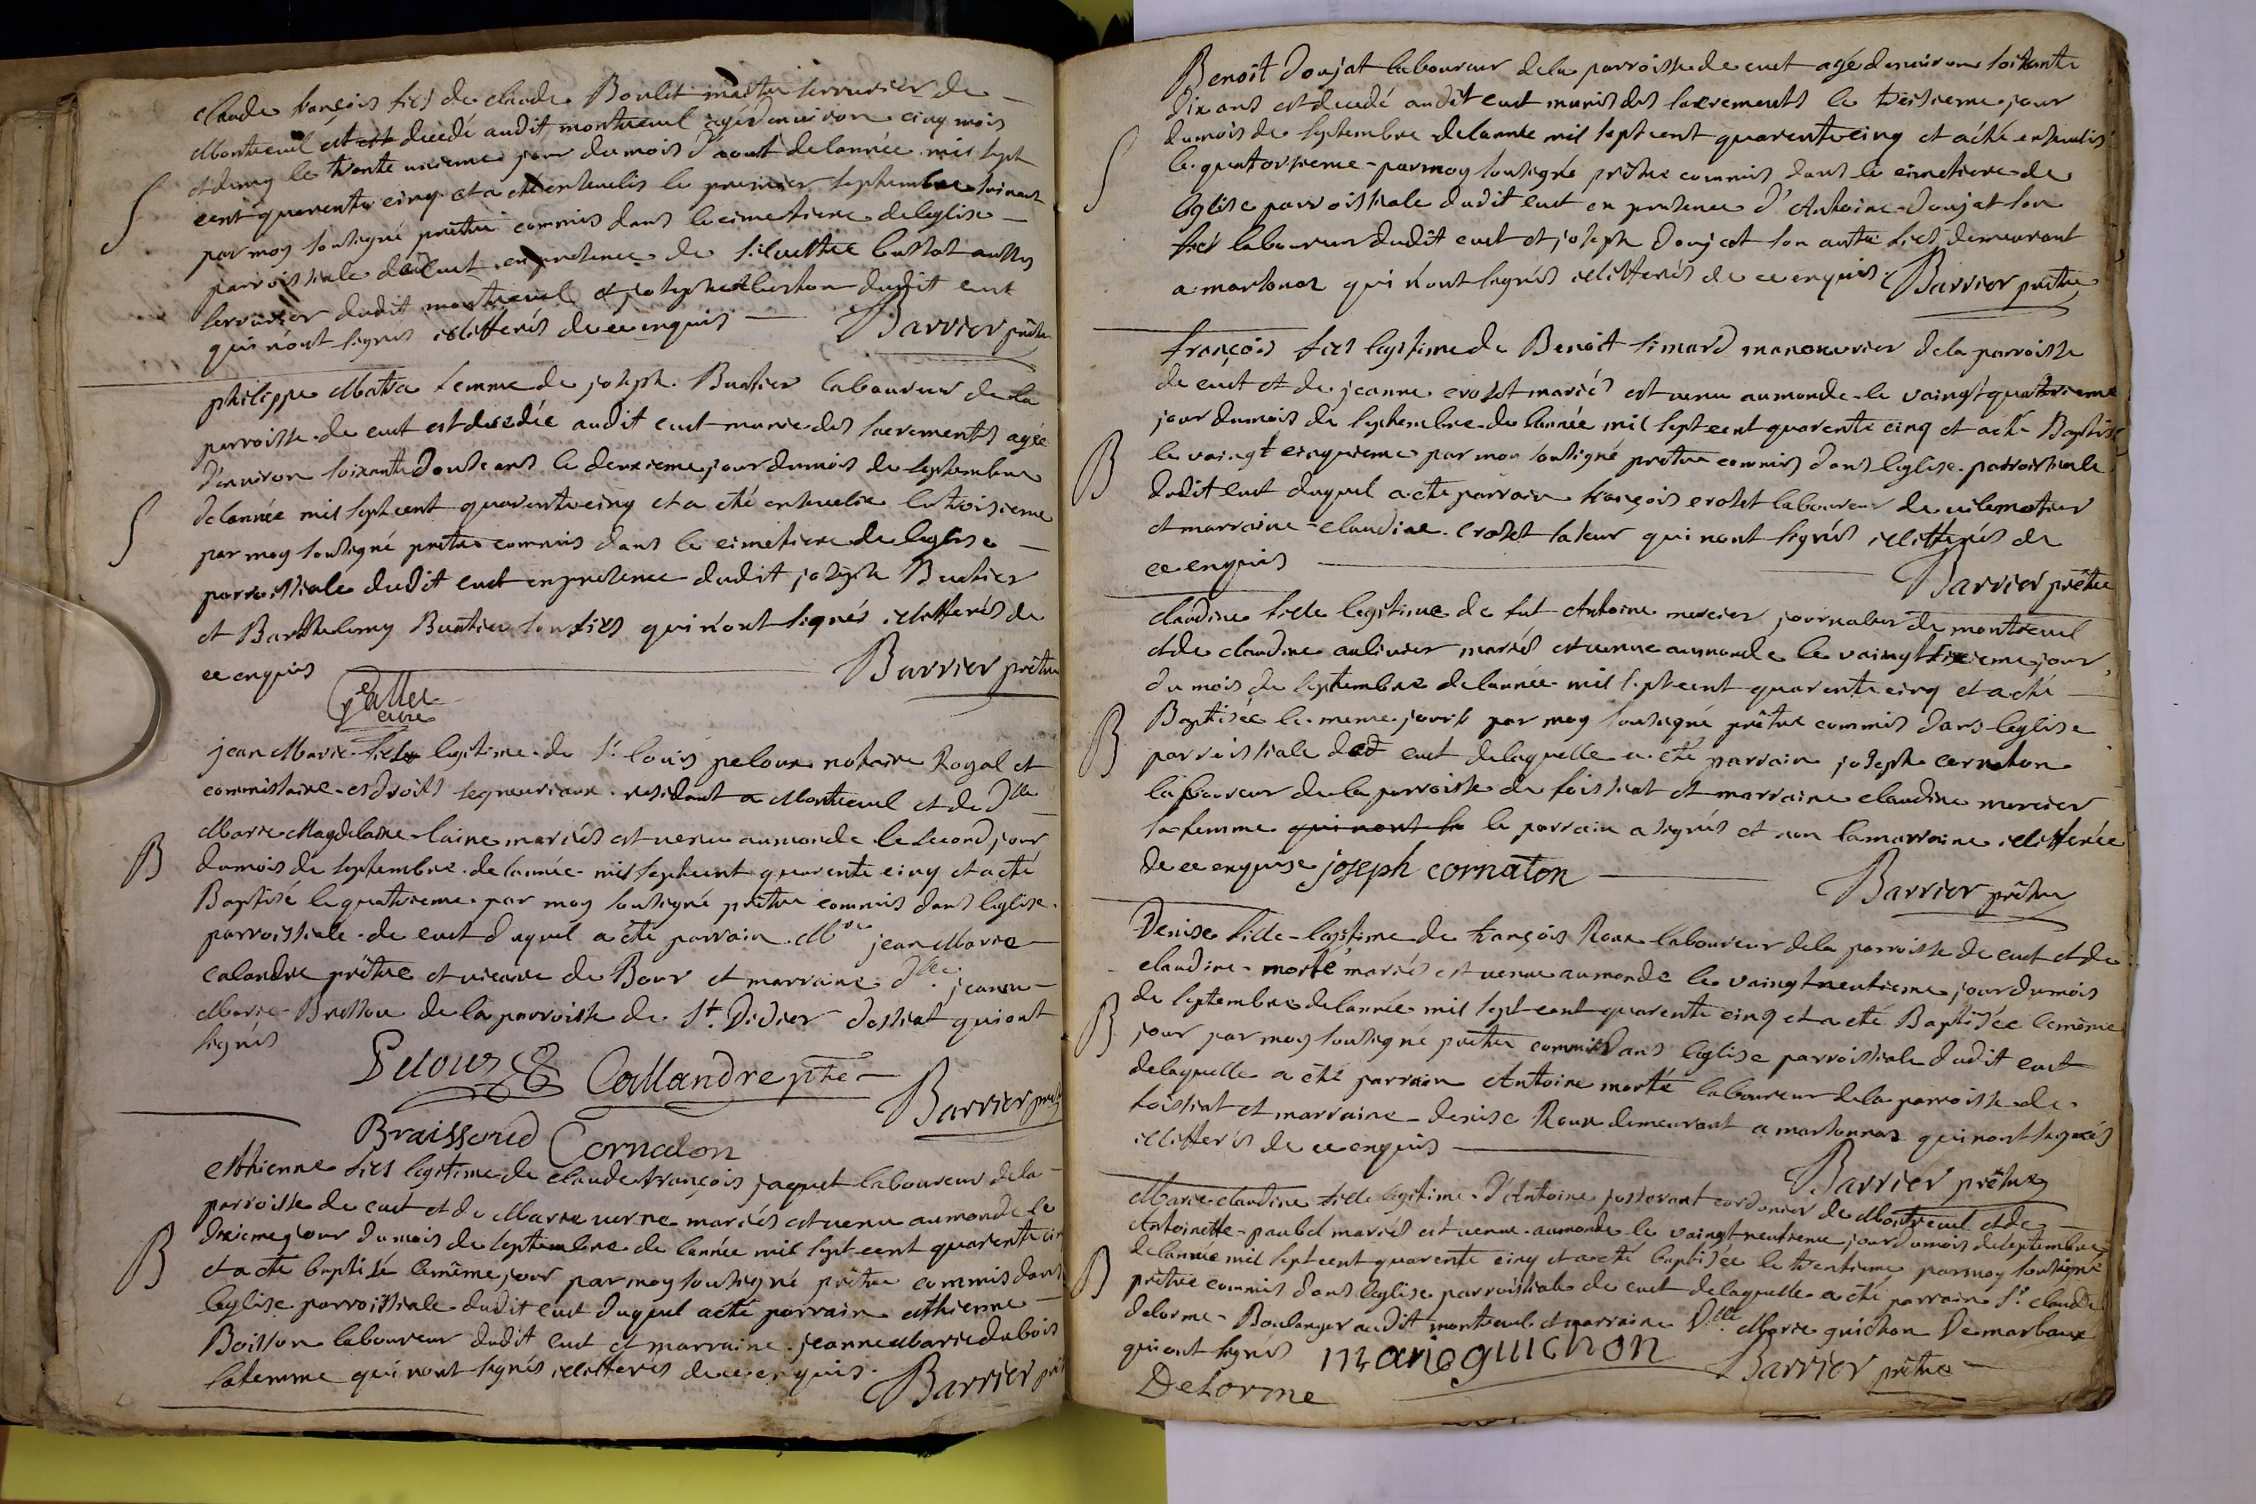 claude françois fils de claude Boulet maitre serrurier de
Montreuil est est decedé audit montreuil agé denviron cinq mois
et demy le trente unieme jour du mois d'aout delannée mil sept
cent quarente cinq et a eté ensevelis le premier septembre suivant
par moy sousigné prêtre commis dans le cimetiere deleglise
parroissiale de cuet en presence de silvestre aussy
serrurier dudit montreuil et joseph dudit cuet
qui n'ont signés illitterés de ce enquis Barrier prêtre
philippe Matra femme de joseph Burtier laboureur de la
parroisse de cuet est decedée audit cuet munie des sacrements agée
d'environ soixante douse ans le deuxieme jour du mois de septembre
delannée mil sept cent quarente cinq et a eté ensevelie le troisieme
par moy sousigné prêtre commis dans le cimetiere de leglise
parroissiale dudit cuet en presence dudit joseph Burtier
et Barthelemy Burtier son fils qui n'ont signés illitterés de
ce enquis Barrier prêtre
curé
jean Marie fils legitime de Sr louis peloux notaire Royal et
commissaire es droits segneuriaux residant a Montreuil et de Dlle
Marie Magdelaine laine mariés est venu au monde le second jour
du mois de septembre de lannée mil sept cent quarente cinq et a eté
Baptisé le quatrieme par moy sousigné prêtre commis dans leglise
parroissiale de cuet duquel a eté parrain Mre jean Marie
calandre prêtre et vicaire de Bour et marraine Dlle jeanne
Marie Bressou de la parroisse de St Didier dossiat qui ont
signés
Peloux Callandre ptre Barrier prêtre
Braissoud Cornaton
esthienne fils legitime de claude françois jaquet laboureur dela
parroisse de cuet et de Marie verne mariés est venu au monde le
dixieme jour du mois de septembre de lannée mil sept cent quarente cinq
et a eté baptisé le même jour par moy sousigné prêtre commis dans
leglise parroissiale dudit cuet duquel a eté parrain esthienne
Boisson laboureur dudit cuet et marraine jeanne Marie dubois
sa femme qui n'ont signés illitterés de ce enquis Barrier prêtre
Benoît doujat laboureur dela parroisse de cuet agé denviron soixante
dix ans est decedé audit cuet munis des sacrements le treisieme jour
du mois de septembre delannée mil sept cent quarente cinq et a eté ensevelis
le quatorsieme par moy sousigné prêtre commis dans le cimetiere de
leglise parroissiale dudit cuet en presence d'Antoine doujat son
fils laboureur dudit cuet et joseph doujat son autre fils demeurant
a martonaz qui n'ont signés illitterés de ce enquis Barrier prêtre
françois fils legitime de Benoît simard manouvrier dela parroisse
de cuet et de jeanne crozet mariés est venu au monde le vaingt quatrieme
jour du mois de septembre de lannée mil sept cent quarente cinq et a eté Baptisé
le vaingt cinquieme par moy sousigné prêtre commis dans leglise parroissiale
dudit cuet duquel a eté parrain françois crozet laboureur de vilemotier
et marraine claudine crozet sa seur qui n'ont signés illitterés de
ce enquis Barrier prêtre
claudine fille legitime de fut Antoine mercier journalier de montreuil
et de claudine aulivier mariés est venue au monde le vaingt sixieme jour
du mois de septembre delannée mil sept cent quarente cinq et a eté
Baptisée le meme jour par moy sousigné prêtre commis dans leglise
parroissiale dud cuet delaquelle a eté parrain joseph cornaton
laboureur de la parroisse de foissiat et marraine claudine mercier
sa femme qui n'ont le parrain a signés et non la marraine illitterée
de ce enquise joseph cornaton
Barrier prêtre
Denise fille legitime de françois Roux laboureur dela parroisse de cuet et de
claudine morté mariés est venue au monde le vaingt neufieme jour du mois
de septembre delannée mil sept cent quarente cinq et a eté Baptisée le même
jour par moy sousigné prêtre commis dans leglise parroissiale dudit cuet
delaquelle a eté parrain Antoine morté laboureur dela parroisse de
foissiat et marraine denise Roux demeurant a martonnaz qui n'ont signés
illitterés de ce enquis
Barrier prêtre
Marie claudine fille legitime d'Antoine josserant cordonier de Montreuil et de
Antoinette paubel mariés est venue au monde le vaingt neufieme jour du mois de septembre
delannée mil sept cent quarente cinq et a eté baptisée le trentieme par moy sousigné
prêtre commis dans leglise parroissiale de cuet delaquelle a eté parrain Sr claude
delorme Boulanger audit montreuil et marraine Dlle Marie guichon De marbaux
qui ont signés marie guichon Barrier prêtre
Delorme